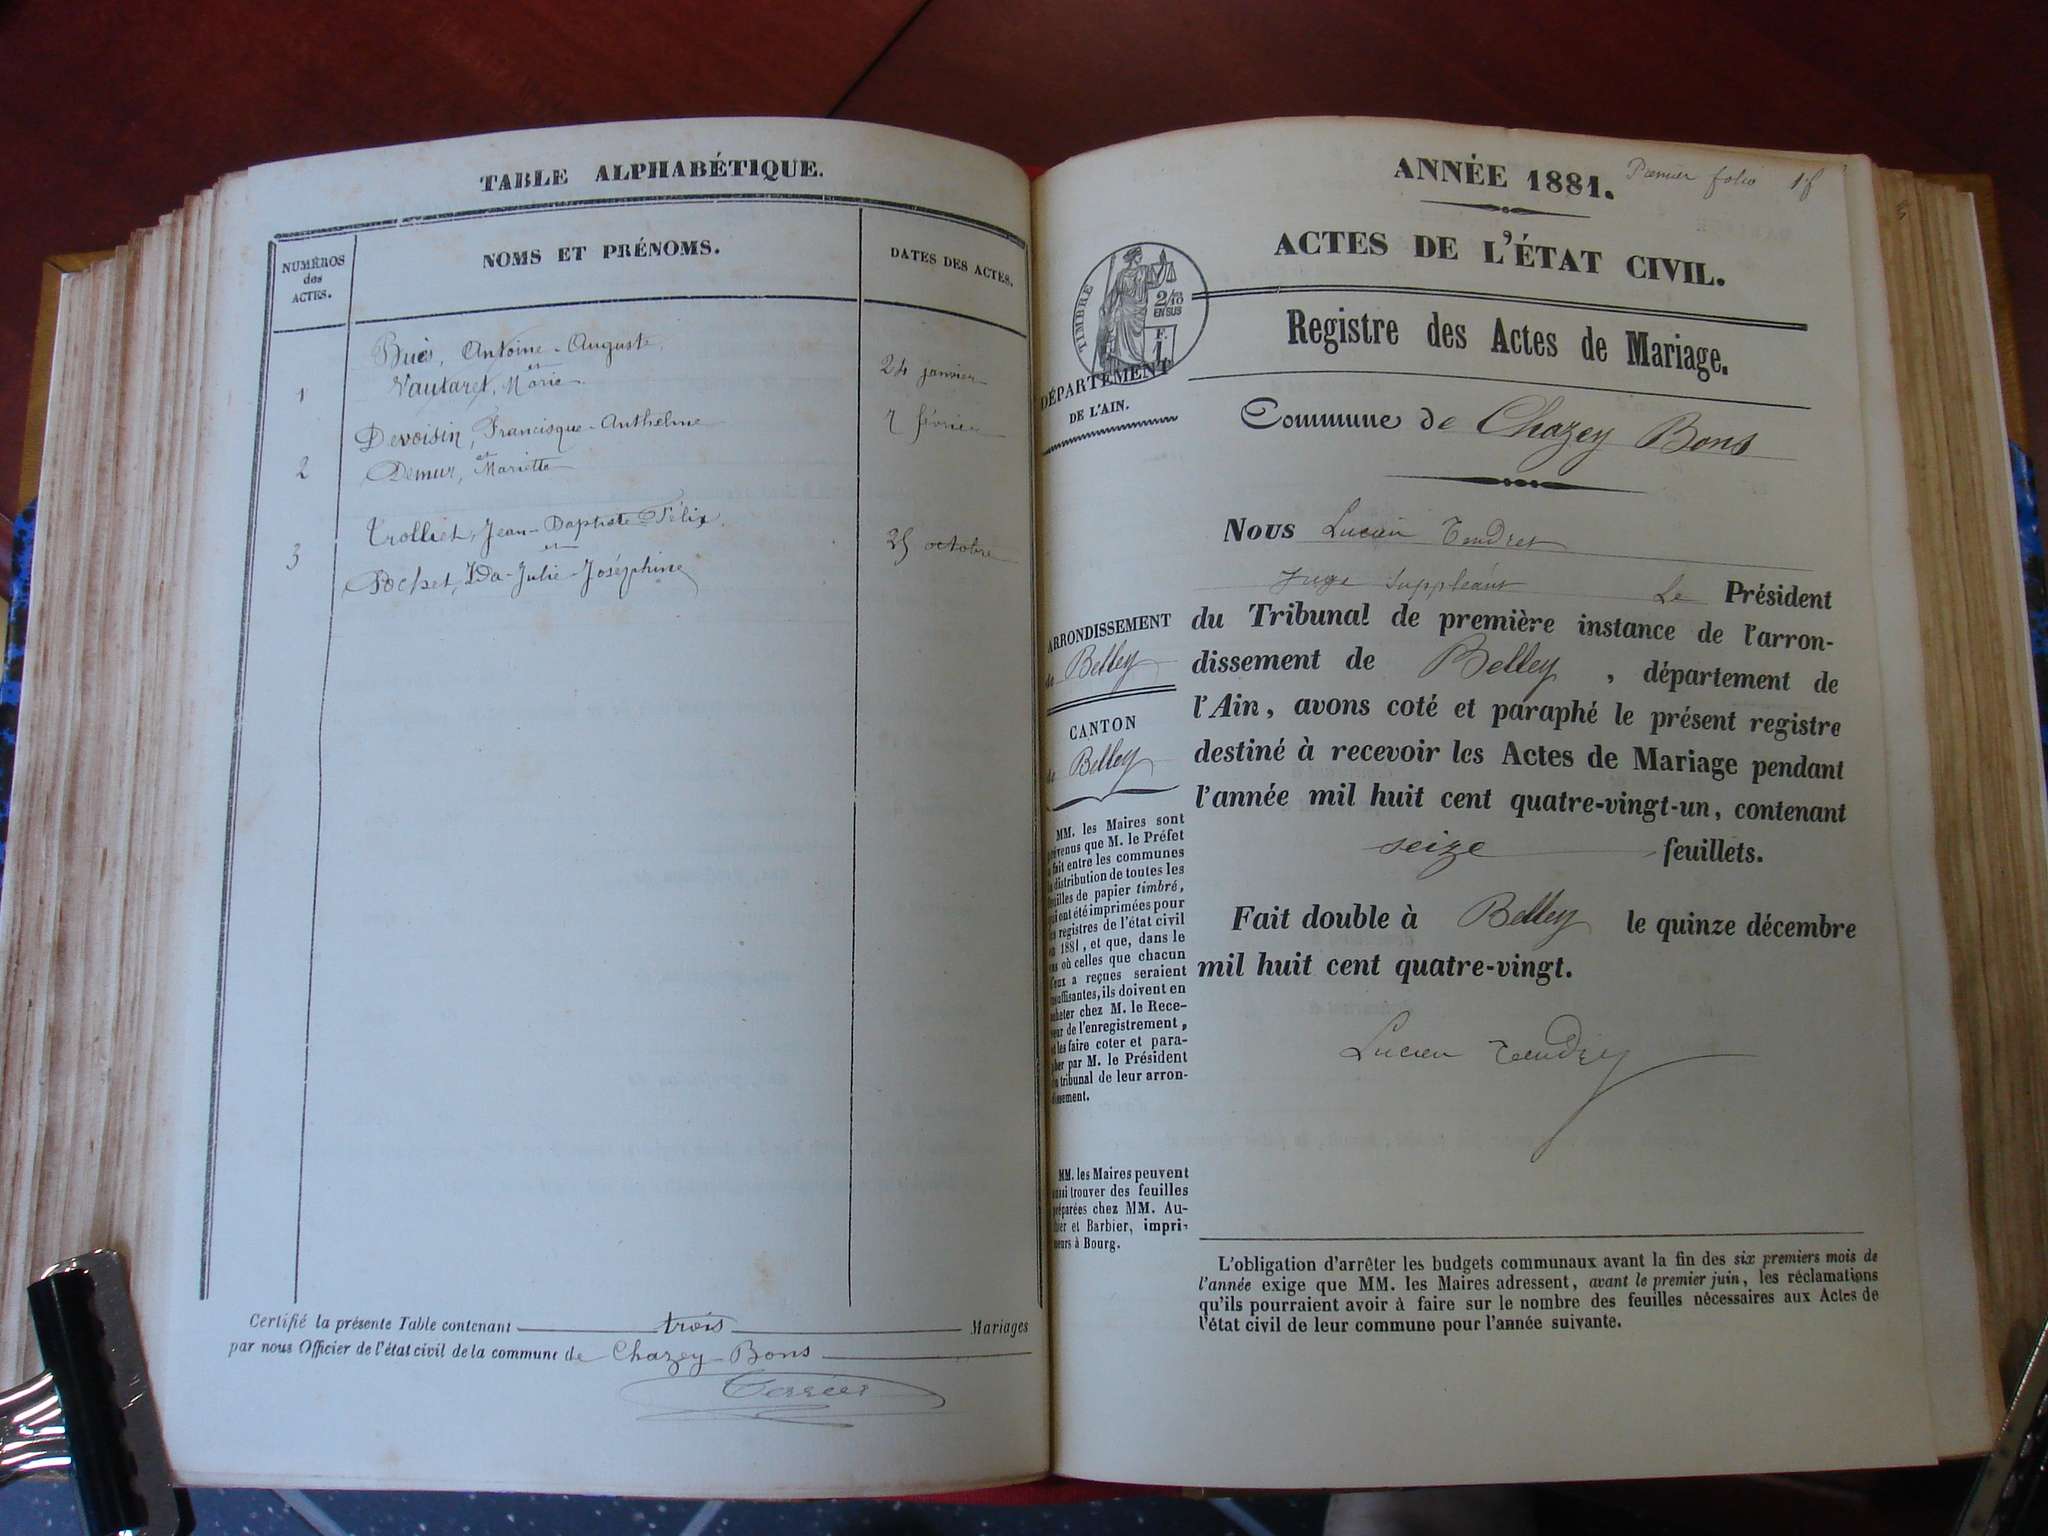 TABLE ALPHABÉTIQUE.
NUMÉROS
des
ACTES.
NOMS ET PRÉNOMS.
DATES DES ACTES.
Antoine-Auguste,
et
1 Vautaret, Marie 24 janvier
Devoisin, Francisque-Anthelme 7 février
et
2 Demur, Mariette
Trolliet, Jean-Baptiste Félix
et
3 25 octobre
Pochet, Ida-Julie-Joséphine
Certifié la présente Table contenant trois Mariages
par nous Officier de l'état civil de la commune de Chazey-Bons
ANNÉE 1881.
Premier folio
ACTES DE L'ÉTAT CIVIL.
TIMBRE
2/10
EN SUS
F.
1
Registre des Actes de Mariage.
DÉPARTEMENT
DE L'AIN.
Commune de Chazey Bons
Nous Lucien Tendret
Juge Suppléant Le Président
du Tribunal de première instance de l'arron-
dissement de Belley, département de
l'Ain, avons coté et paraphé le présent registre
destiné à recevoir les Actes de Mariage pendant
l'année mil huit cent quatre-vingt-un, contenant
seize feuillets.
Fait double à Belley le quinze décembre
mil huit cent quatre-vingt.
Lucien Tendret
ARRONDISSEMENT
de Belley
CANTON
de Belley
MM. les Maires sont
prévenus que M. le Préfet
a fait entre les communes
la distribution de toutes les
feuilles de papier timbré,
qui ont été imprimées pour
les registres de l'état civil
en 1881, et que, dans le
cas où celles que chacun
d'eux a reçues seraient
insuffisantes, ils doivent en
acheter chez M. le Rece-
veur de l'enregistrement,
et les faire coter et para-
pher par M. le Président
du tribunal de leur arron-
dissement.
MM. les Maires peuvent
aussi trouver des feuilles
préparées chez MM. Au-
et Barbier, impri-
meurs à Bourg.
L'obligation d'arrêter les budgets communaux avant la fin des six premiers mois de
l'année exige que MM. les Maires adressent, avant le premier juin, les réclamations
qu'ils pourraient avoir à faire sur le nombre des feuilles nécessaires aux Actes de
l'état civil de leur commune pour l'année suivante.